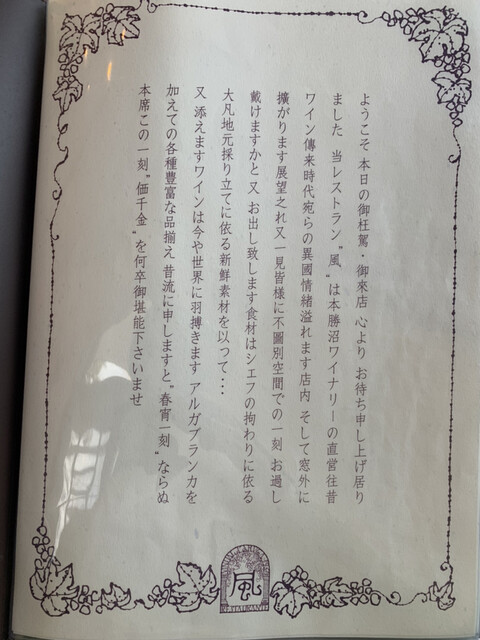 ようこそ 本日の御枉駕・御來店 心より お待ち申し上げ居り
ました 当レストラン〝風〟は本勝沼ワイナリーの直営往昔
ワイン傳来時代宛らの異國情緒溢れます店内 そして窓外に
擴がります展望之れ又一見皆様に不圖別空間での一刻 お過し
戴けますかと 又 お出し致します食材はシエフの拘わりに依る
大凡地元採り立てに依る新鮮素材を以つて・・・
又 添えますワインは今や世界に羽搏きます アルガブランカを
加えての各種豊富な品揃え 昔流に申しますと〝春宵一刻〟ならぬ
本席この一刻〝価千金〟を何卒御堪能下さいませ
風